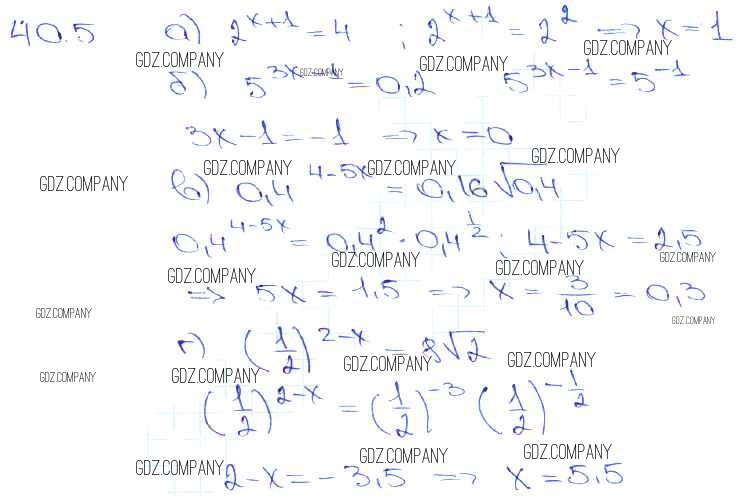 40.5 а) 2^{x+1} = 4 ; 2^{x+1} = 2^2 => x = 1
GDZ.COMPANY GDZ.COMPANY GDZ.COMPANY GDZ.COMPANY
б) 5^{3x-1} = 0,2 5^{3x-1} = 5^{-1}
3x-1 = -1 => x = 0
GDZ.COMPANY GDZ.COMPANY GDZ.COMPANY GDZ.COMPANY
в) 0,4^{4-5x} = 0,16√0,4
0,4^{4-5x} = 0,4^2 · 0,4^{1/2} ; 4-5x = 2,5
GDZ.COMPANY GDZ.COMPANY GDZ.COMPANY GDZ.COMPANY
=> 5x = 1,5 => x = 3/10 = 0,3
GDZ.COMPANY GDZ.COMPANY
г) (1/2)^{2-x} = 8√2
GDZ.COMPANY GDZ.COMPANY GDZ.COMPANY GDZ.COMPANY
(1/2)^{2-x} = (1/2)^{-3} (1/2)^{-1/2}
GDZ.COMPANY GDZ.COMPANY GDZ.COMPANY
2-x = -3,5 => x = 5,5